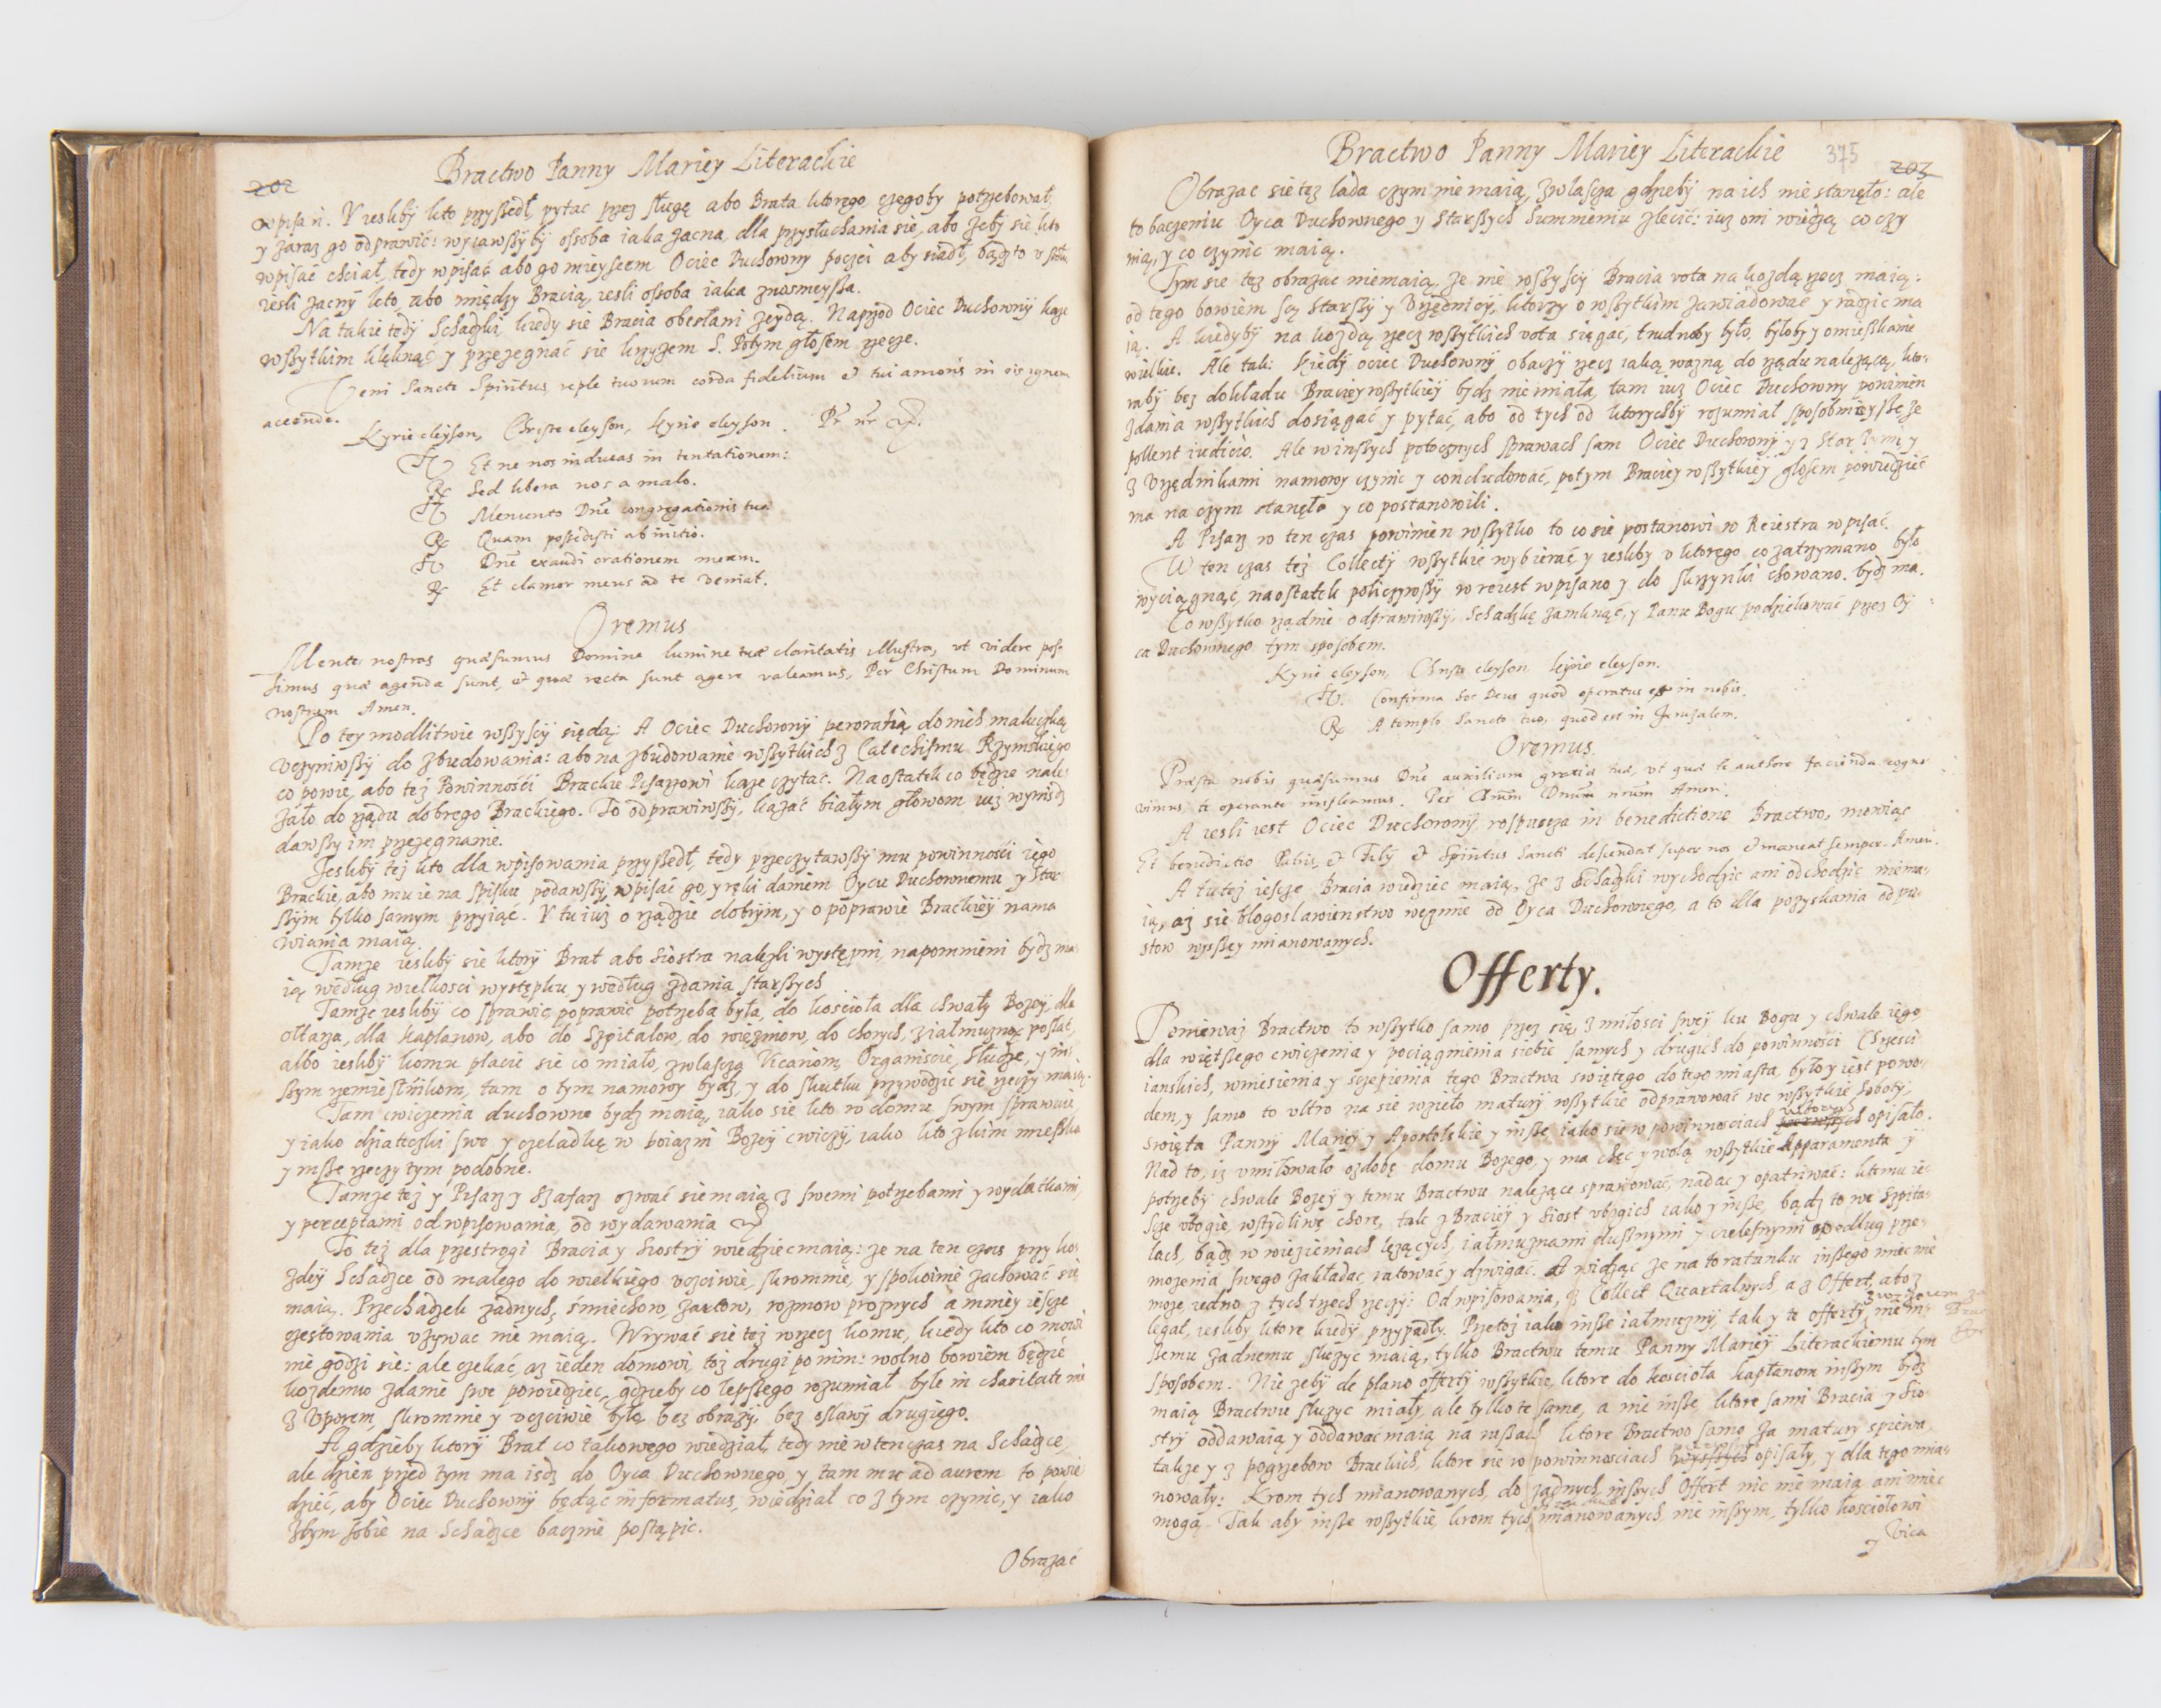 202
Bractwo Panny Mariey Literackie
wpisan. Y iesliby kto przyszedł, pytac przez sługę abo Brata ktorego, czegoby potrzebował,
y zaraz go odprawić: wyiąwszyby ossoba iaka zacna, dla przysłuchania sie, abo żeby sie kto
wpisać chciał, tedy wpisać abo go mieyscem Ociec Duchowny poczci aby siadł, bądz to v stołu
iesli zacny kto, abo między Bracią, iesli ossoba iaka znosnieysza.
Na takie tedy Schadzki, kiedy sie Bracia obesłani zeydą. Naprzod Ociec Duchowny każe
wszytkim klęknąć y przeżegnać sie krzyżem S. Potym głosem rzecze.
Veni Sancte Spiritus, reple tuorum corda fidelium et tui amoris in eis ignem
accende.
Kyrie eleyson, Christe eleyson, Kyrie eleyson. Pr nr
V Et ne nos inducas in tentationem:
R Sed libera nos a malo.
V Memento Dne congregationis tuæ
R Quam possedisti ab initio.
V Dne exaudi orationem meam.
R Et clamor meus ad te veniat.
Oremus
Mentes nostras quæsumus Domine lumine tuæ claritatis illustra, vt videre pos-
simus quæ agenda sunt, et quæ recta sunt agere valeamus, Per Christum Dominum
nostrum Amen.
Po tey modlitwie wszyscy siędą: A Ociec Duchowny peroratią do nich maluczką
vczyniwszy do zbudowania: abo na zbudowanie wszytkich z Catechismu Rzymskiego
co powie, abo też Powinności Brackie Pisarzowi każe czytać. Na ostatek co będzie nale-
żało do rządu dobrego Brackiego. To odprawiwszy, kazać białym głowom iuż wynisdz
dawszy im przeżegnanie.
Jesliby też kto dla wpisowania przyszedł, tedy przeczytawszy mu powinności iego
Brackie, abo mu ie na spisku podawszy, wpisać go, y ręki daniem Oycu Duchownemu y Star-
szym tylko samym przyiąć. Y tu iuż o rządzie dobrym, y o poprawie Brackiey nama
wiania maią.
Tamże iesliby sie ktory Brat abo Siostra naleźli występni, napomnieni bydz ma-
ią według wielkosci występku y według zdania starszych
Tamże iesliby co sprawic, poprawic potrzeba była, do koscioła dla chwały Bożey, dla
ołtarza, dla Kapłanow, abo do Szpitalow, do więzniow, do chorych, z iałmużną posłać,
albo iesliby komu płacic sie co miało, zwłaszcza Vicariom, Organiscie, Słudze, y in-
szym rzemiesłnikom, tam o tym namowy bydz, y do skutku przywodzic sie rzeczy maią.
Tam cwiczenia duchowne bydz maią, iako sie kto w domu swym sprawuie,
y iako dziateczki swe y czeladkę w boiazni Bożey cwiczy, iako kto z kim mieszka
y insze rzeczy tym podobne.
Tamże też y Pisarz y Szafarz ozwać sie maią z swemi potrzebami y wydatkami,
y perceptami od wpisowania, od wydawania
To też dla przestrogi Bracia y Siostry wiedziec maią: że na ten czas przy ko-
zdey Schadzce od małego do wielkiego vczciwie, skromnie, y spokoinie zachować sie
maią. Przechadzek żadnych, śmiechow, żartow, rozmow proznych a mniey iescze
częstowania vżywac nie maią. Wrywać sie też w rzecz komu, kiedy kto co mowi
nie godzi sie: ale czekać, aż ieden domowi, toż drugi po nim: wolno bowiem będzie
kożdemu zdanie swe powiedziec, gdzieby co lepszego rozumiał, byle in charitate nie
z vporem, skromnie y vczciwie było, bez obrazy, bez osławy drugiego.
A gdzieby ktory Brat co takowego wiedział, tedy nie w ten czas na Schadzce,
ale dzien przed tym ma isdz do Oyca Duchownego, y tam mu ad aurem to powie
dzieć, aby Ociec Duchowny będąc informatus, wiedział co z tym czynic, y iako
z tym sobie na Schadzce bacznie postąpic.
Obrażać
Bractwo Panny Mariey Literackie
375
203
Obrażac sie też lada czym nie maią, zwłaszcza gdzieby na ich nie stanęło: ale
to baczeniu Oyca Duchownego y Starszych Summieniu zlecić: iuż oni wiedzą co czy
nią, y co czynic maią.
Tym sie też obrażac nie maią, że nie wszyscy Bracia vota na każdą rzecz maią:
od tego bowiem są Starszy y Vrzędnicy, ktorzy o wszytkim zawiadować y radzic ma
ią. A kiedyby na kożdą rzecz wszytkich vota sięgać, trudnoby było, byłoby y omieszkanie
wielkie. Ale tak: Kiedy ociec Duchowny obaczy rzecz iaką ważną, do rządu należącą, kto-
raby bez dokładu Braciey wszytkiey bydz nie miała, tam iuż Ociec Duchowny powinien
zdania wszytkich dosiągać y pytać, abo od tych od ktorychby rozumiał sposobnieysze, że
pollent iudicio. Ale w inszych potocznych sprawach sam Ociec Duchowny y z Starszymi, y
z Vrzędnikami namowy czynic y concludować, potym Braciey wszytkiey głosem powiedzieć
ma na czym stanęło y co postanowili.
A Pisarz w ten czas powinien wszytko to co sie postanowi w Reiestra wpisać.
W ten czas też Collecty wszytkie wybierać, y iesliby v ktorego co zatrzymano było
wyciągnąć, na ostatek policzywszy w reiest wpisano y do skrzynki chowano bydz ma.
Co wszytko rządnie odprawiwszy, Schadzkę zamknąć, y Panu Bogu podziękować przez Oy-
ca Duchownego tym sposobem.
Kyrie eleyson, Christe eleyson Kyrie eleyson.
V. Confirma hoc Deus quod operatus es in nobis.
R A templo sancto tuo, quod est in Jeruzalem.
Oremus.
Præsta nobis quæsumus Dne auxilium gratiæ tuæ, vt quæ te authore facienda cogno-
vimus, te operante impleamus. Per Chrum Dnum nrum Amen.
A iesli iest Ociec Duchowny, rospuszcza in benedictione Bractwo, mowiąc
Et benedictio Patris, et Filij et Spiritus Sancti descendat super nos et maneat semper. Amen.
A tu też iescze Bracia wiedziec maią, że z Schadzki wychodzic ani odchodzic nie ma-
ią, aż sie błogosławienstwo weźmie od Oyca Duchownego, a to dla pozyskania odpu-
stow wyszey mianowanych.
Offerty.
Ponieważ Bractwo to wszytko samo przez się, z miłosci swey ku Bogu y chwale iego
dla więtszego cwiczenia y pociągnienia siebie samych y drugich do powinności Chrzesci
ianskich, wniesienia y szczepienia tego Bractwa swiętego do tego miasta, było y iest powo-
dem, y samo to vltro na sie wzięło matury wszytkie odprawować we wszytkie Soboty,
swięta Panny Mariey y Apostolskie y insze iako sie w powinnosciach opisało.
Nad to, iż vmiłowało ozdobę domu Bożego, y ma chęc y wolą wszytkie Apparamenta y
potrzeby chwale Bożey y temu Bractwu należące sprawować, nadac y opatrywać: k temu ie-
scze vbogie, wstydliwe, chore, tak z Braciey y Siost vbogich iako y insze, bądz to we Szpita-
lach, bądz w więzieniach leżących, iałmużnami dusznymi y cielesnymi według prze-
możenia swego zakładac, ratować y dzwigać. A widząc że na to ratunku inszego miec nie
może, iedno z tych trzech rzeczy: Od wpisowania, z Collect Quartalnych, a z Offert, abo z
legat, iesliby ktore kiedy przypadły. Przetoż iako insze iałmużny, tak y te offerty, nie in-
szemu żadnemu służyc maią, tylko Bractwu temu Panny Mariey Literackiemu tym
sposobem. Nie żeby de plano offerty wszytkie, ktore do koscioła kapłanom inszym bydz
maią Bractwu służyc miały, ale tylko te same, a nie insze, ktore sami Bracia y Sio-
stry oddawaią y oddawać maią na mszach ktore Bractwo samo za matury spiewa,
takze y z pogrzebow Brackich, ktore sie w powinnosciach wyszszych opisały, y dla tego mia-
nowały: Krom tych mianowanych, do żadnych inszych Offert nic nie maią ani miec
mogą. Tak aby insze wszytkie, krom tych mianowanych, nie inszym, tylko kosciołowi
y Vica